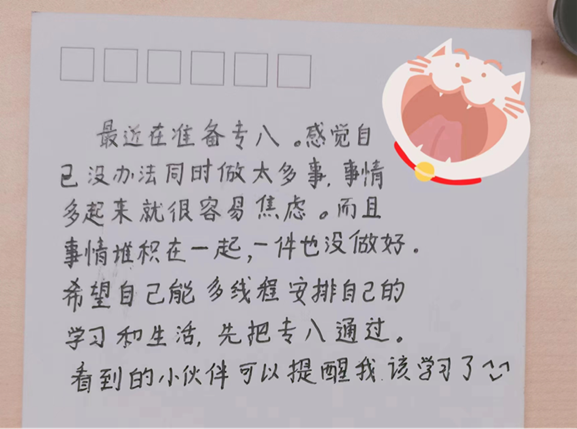 最近在准备专八。感觉自
己没办法同时做太多事，事情
多起来就很容易焦虑。而且
事情堆积在一起，一件也没做好。
希望自己能多线程安排自己的
学习和生活，先把专八通过。
看到的小伙伴可以提醒我该学习了